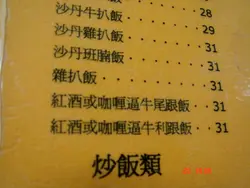 飯 · · 28
沙丹牛扒飯 · · · 29
沙丹雞扒飯 · · · 31
沙丹班腩飯 · · · 31
雜扒飯 · · · · · 31
紅酒或咖喱逼牛尾跟飯 · · 31
紅酒或咖喱逼牛利跟飯 · · 31
炒飯類